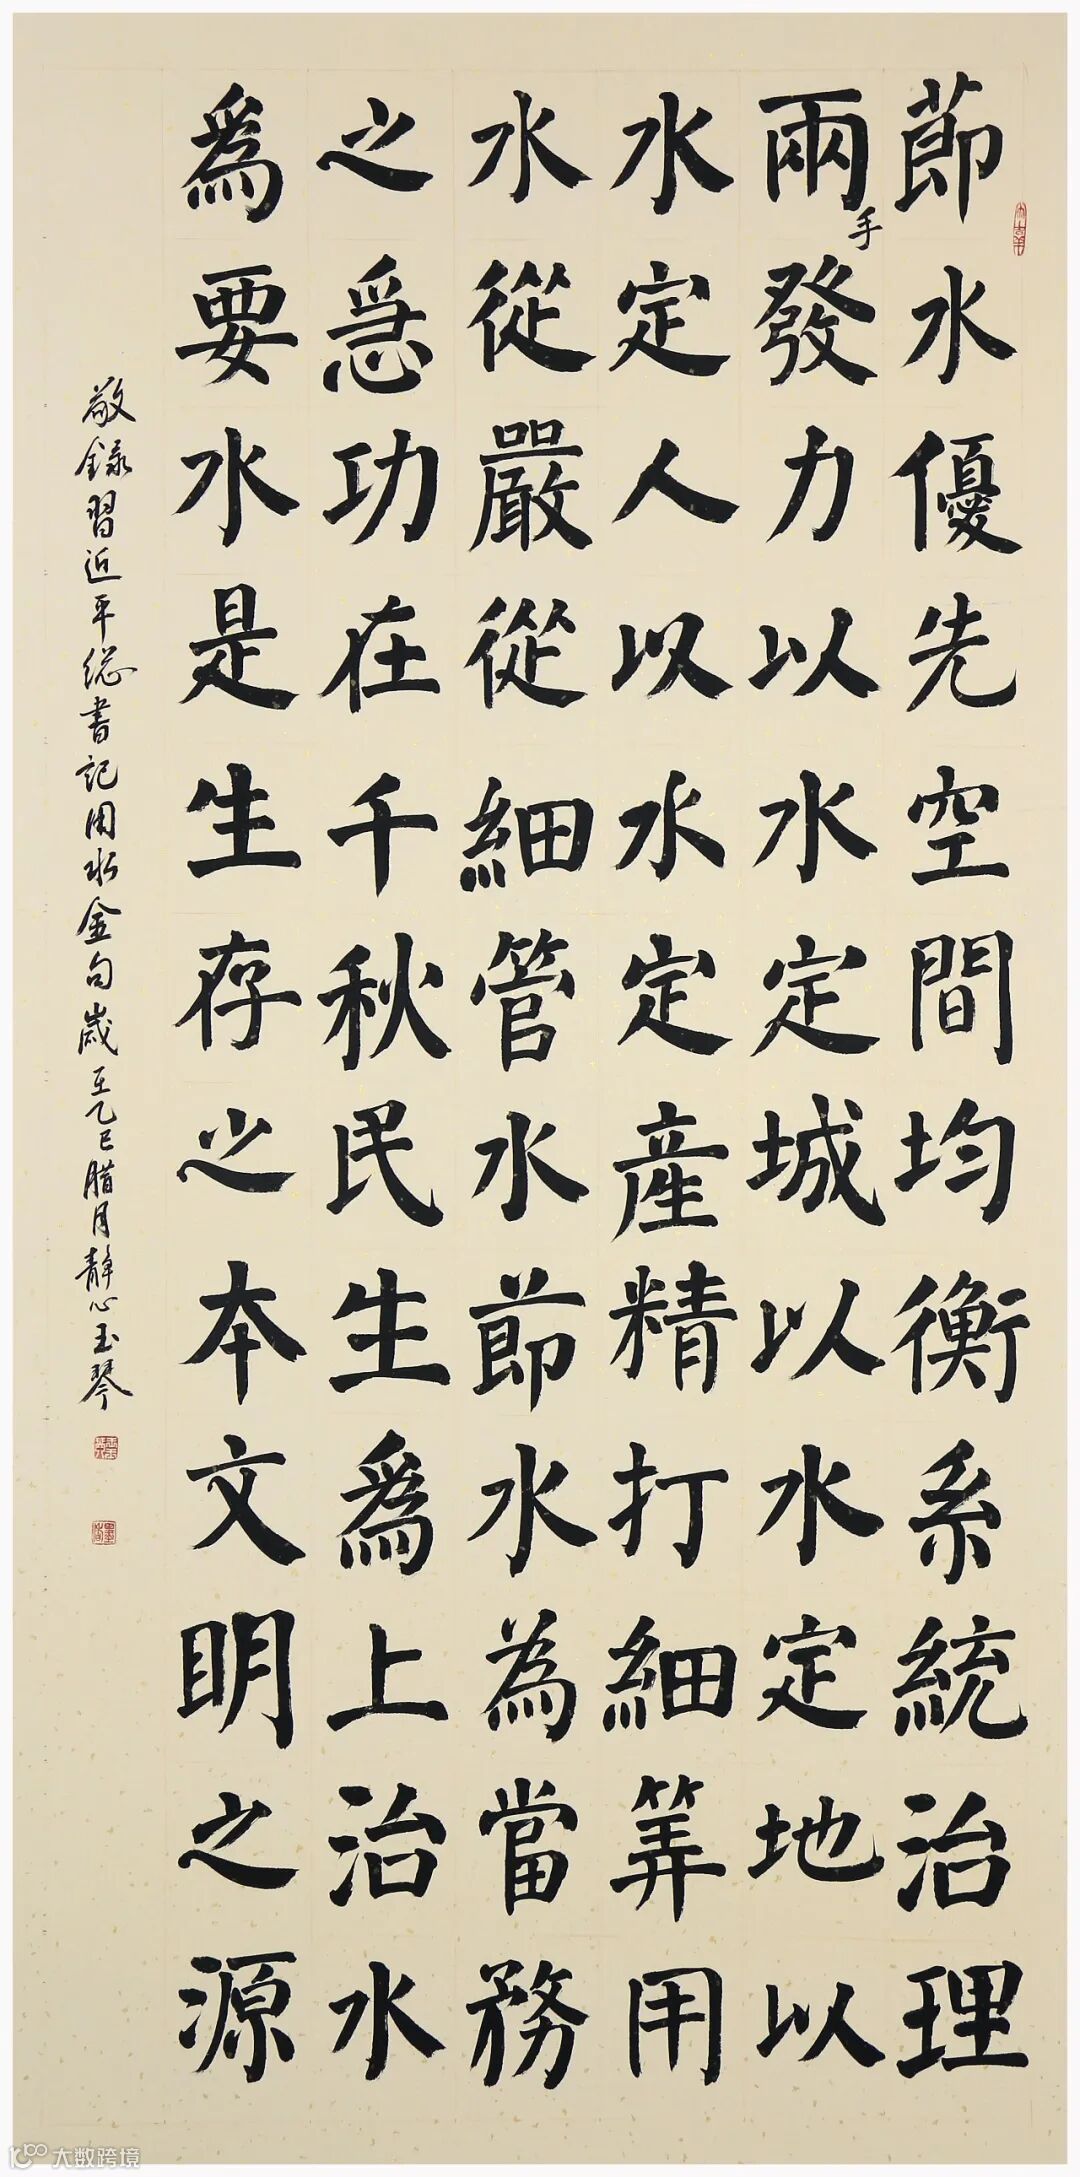 節水優先空間均衡系統治理
兩手發力以水定城以水定地以
水定人以水定產精打細筭用
水從嚴從細管水節水為當務
之急功在千秋民生爲上治水
爲要水是生存之本文明之源
敬録習近平總書記用水金句歲至乙巳腊月静心玉琴
大数跨境